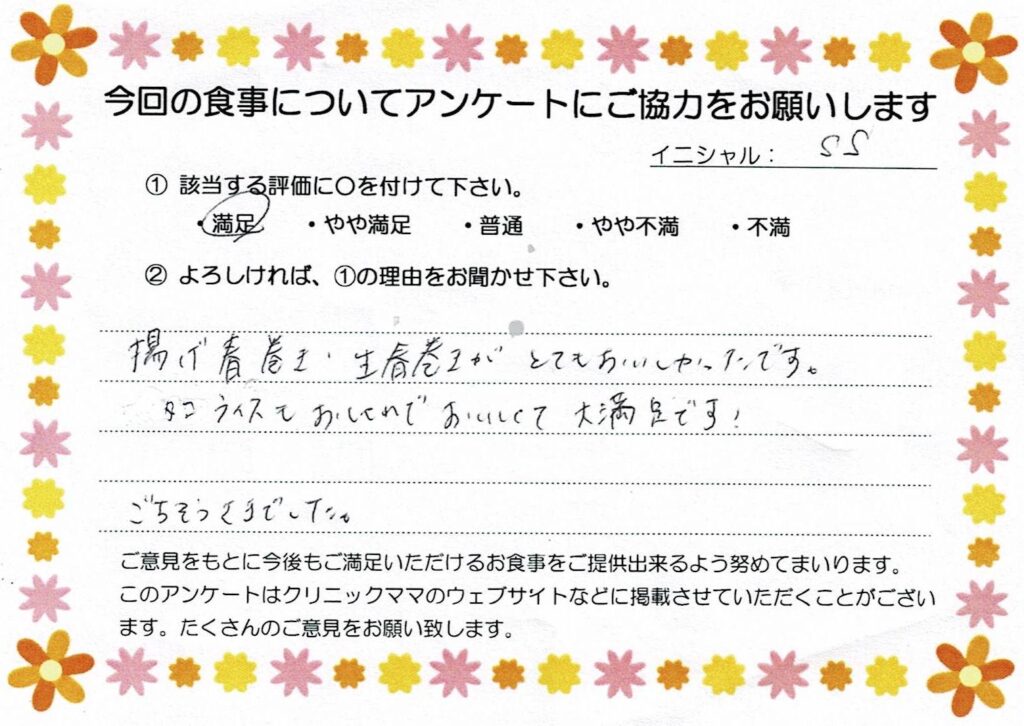 今回の食事についてアンケートにご協力をお願いします
イニシャル： SS
① 該当する評価に〇を付けて下さい。
・満足 ・やや満足 ・普通 ・やや不満 ・不満
② よろしければ、①の理由をお聞かせ下さい。
揚げ春巻き・生春巻きが とてもおいしかったです。
タコライスもおしゃれで おいしくて 大満足です！
ごちそうさまでした。
ご意見をもとに今後もご満足いただけるお食事をご提供出来るよう努めてまいります。
このアンケートはクリニックママのウェブサイトなどに掲載させていただくことがござい
ます。たくさんのご意見をお願い致します。